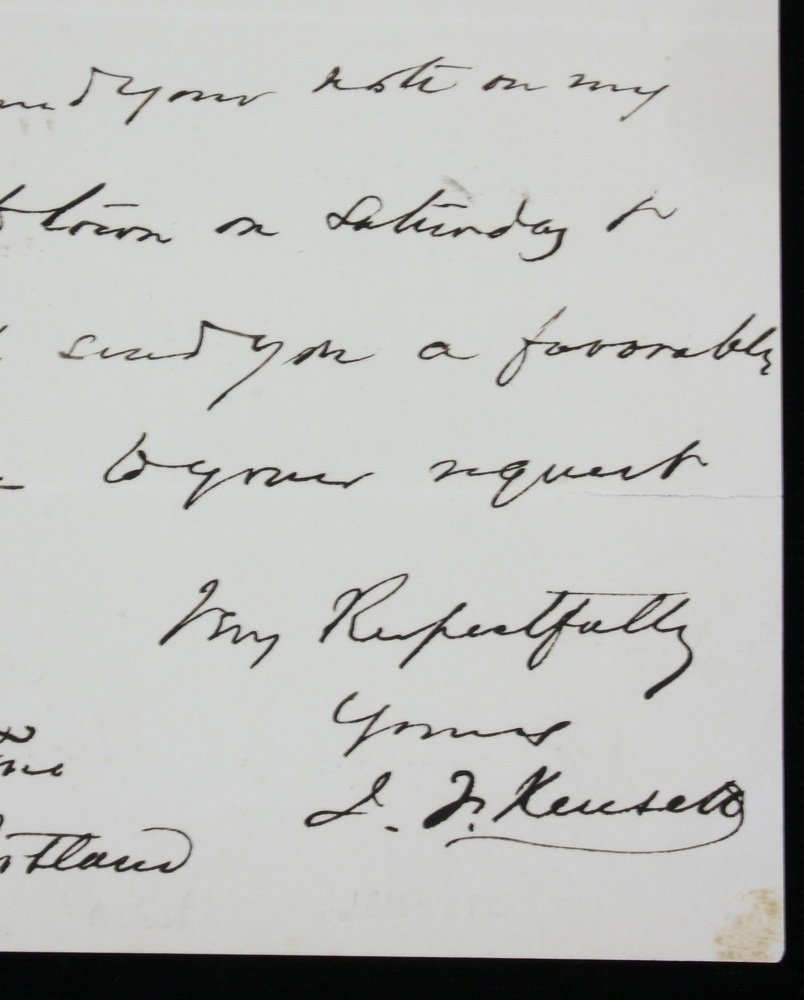 your note on my
town on Saturday &
send you a favorable
to your request
Very Respectfully
Yours
J. F. Kensett